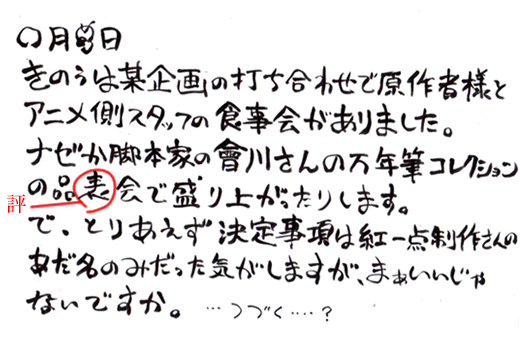 〇月日
きのうは某企画の打ち合わせで原作者様と
アニメ側スタッフの食事会がありました。
ナゼか脚本家の會川さんの万年筆コレクション
の品表会で盛り上がったりします。
評
で、とりあえず決定事項は紅一点制作さんの
あだ名のみだった気がしますが、まぁいいじゃ
ないですか。 …つづく…？